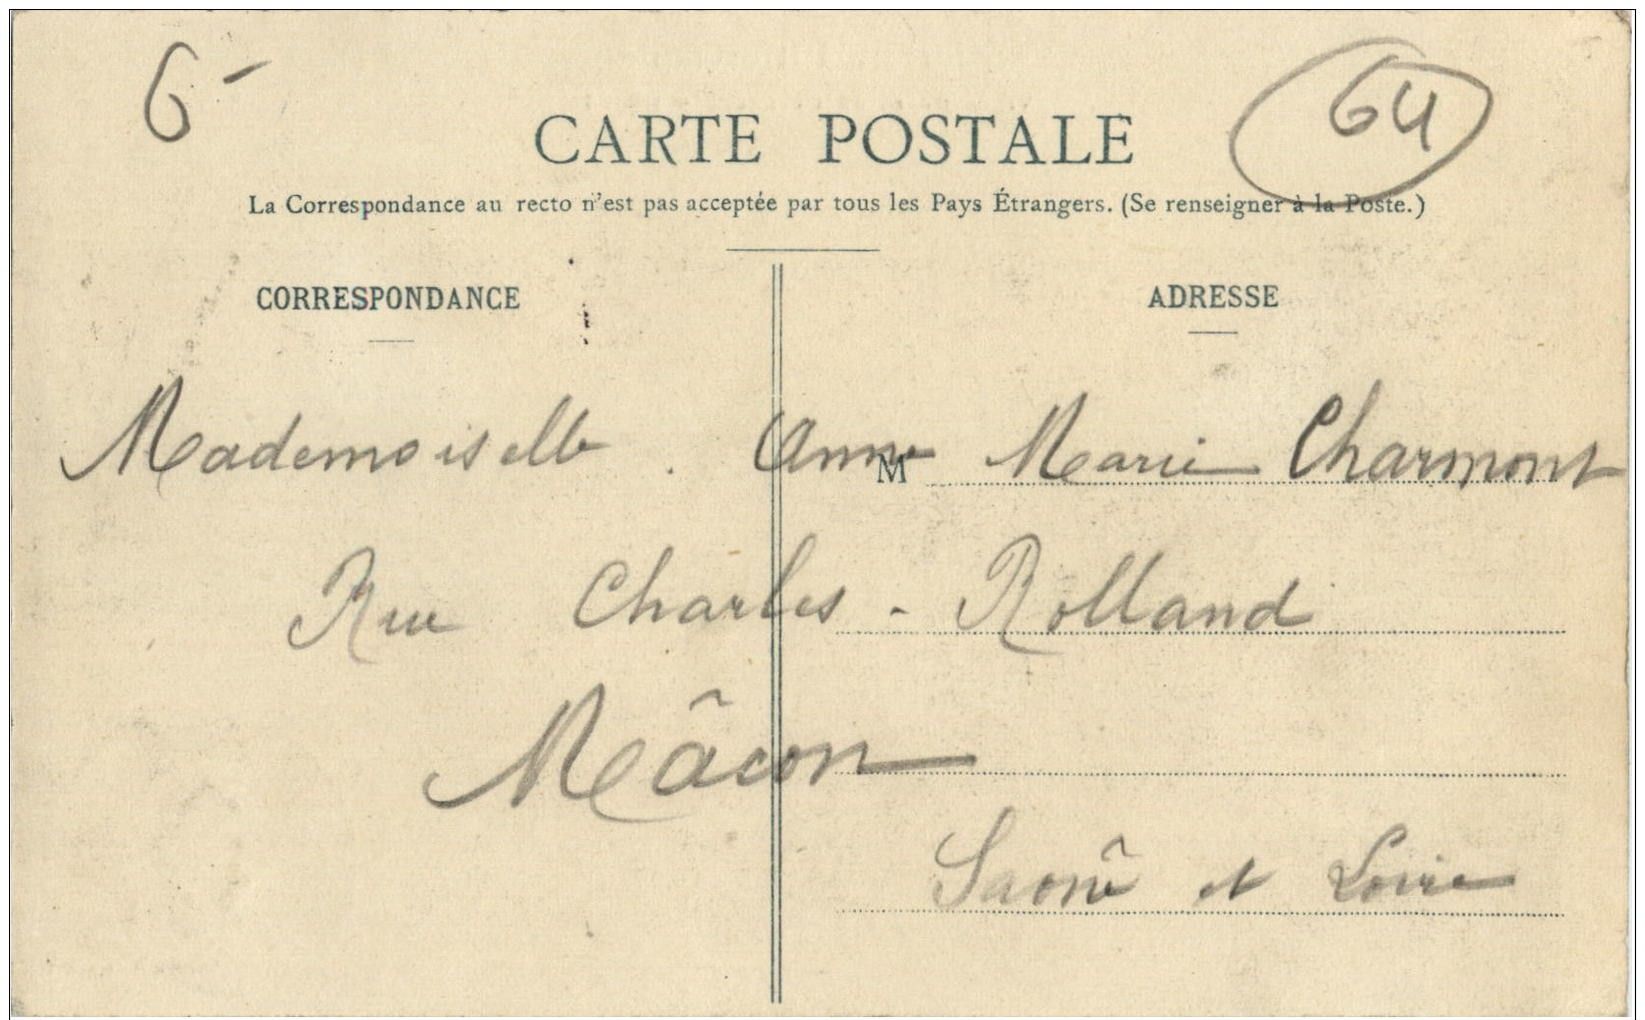 6-
64
CARTE POSTALE
La Correspondance au recto n'est pas acceptée par tous les Pays Étrangers. (Se renseigner à la Poste.)
CORRESPONDANCE
ADRESSE
M
Mademoiselle. Anne Marie Charmont
Rue Charles-Rolland
Mâcon
Saône et Loire